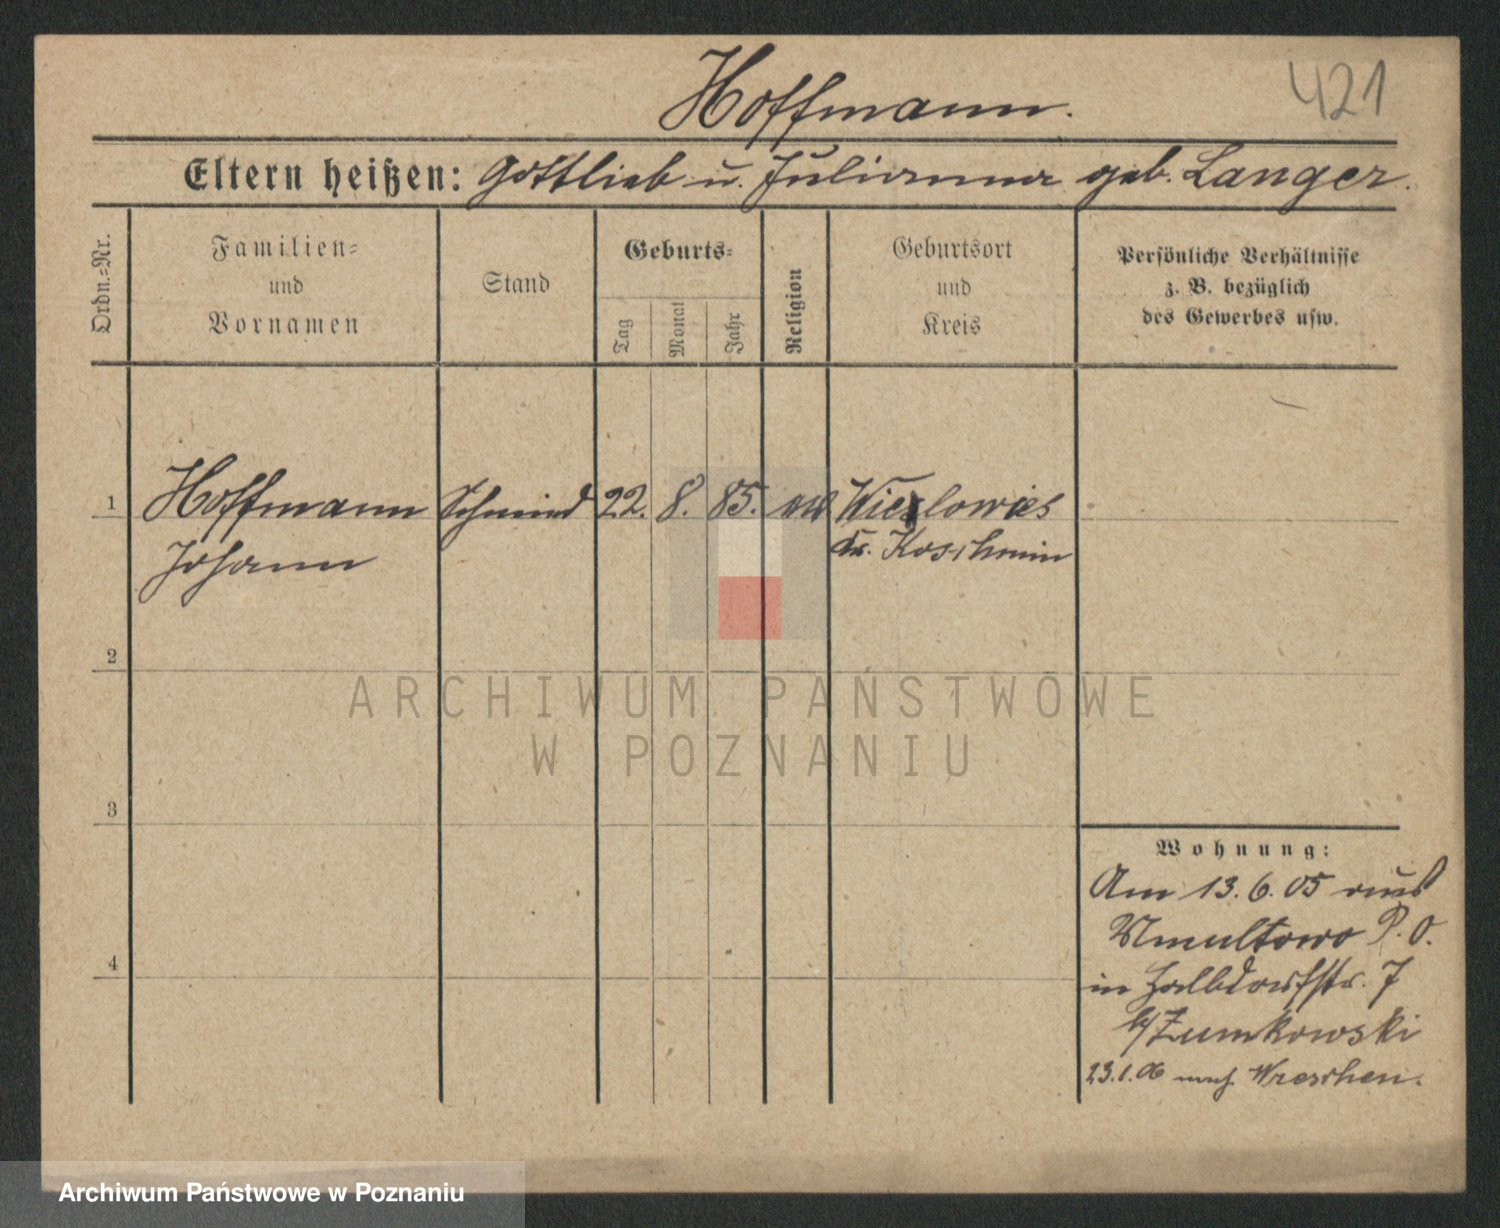 Hoffmann.
421
Eltern heißen: Gottlieb u. Julianna geb. Langer.
Ordn.-Nr.
Familien-
und
Vornamen
Stand
Geburts-
Tag
Monat
Jahr
Religion
Geburtsort
und
Kreis
Persönliche Verhältnisse
z. B. bezüglich
des Gewerbes usw.
1 Hoffmann Schmied 22. 8. 85.
Johann Kr. Koschmin
2
3
4
ARCHIWUM PAŃSTWOWE
W POZNANIU
Wohnung:
Am 13. 6. 05 aus
Umultowo P. O.
in Halbdorfstr. 7
b/Zumkowski
23.1.06 nach Wreschen.
Archiwum Państwowe w Poznaniu